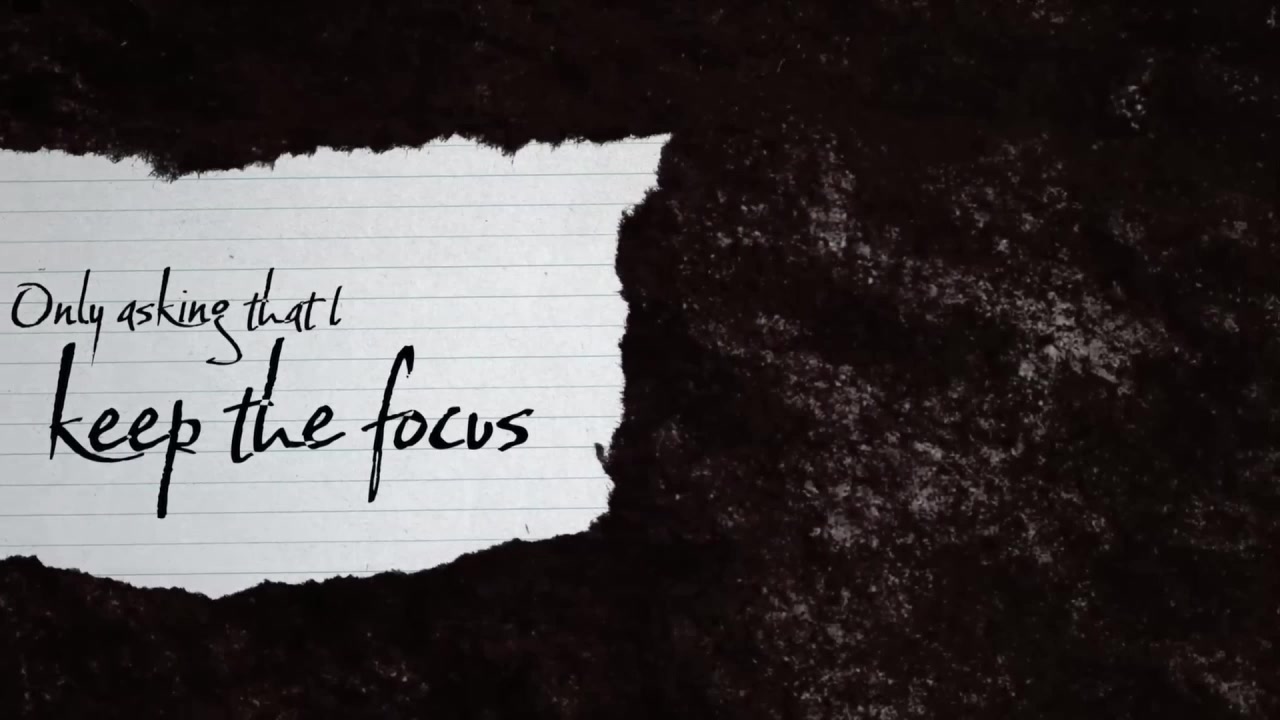 Only asking that I
keep the focus